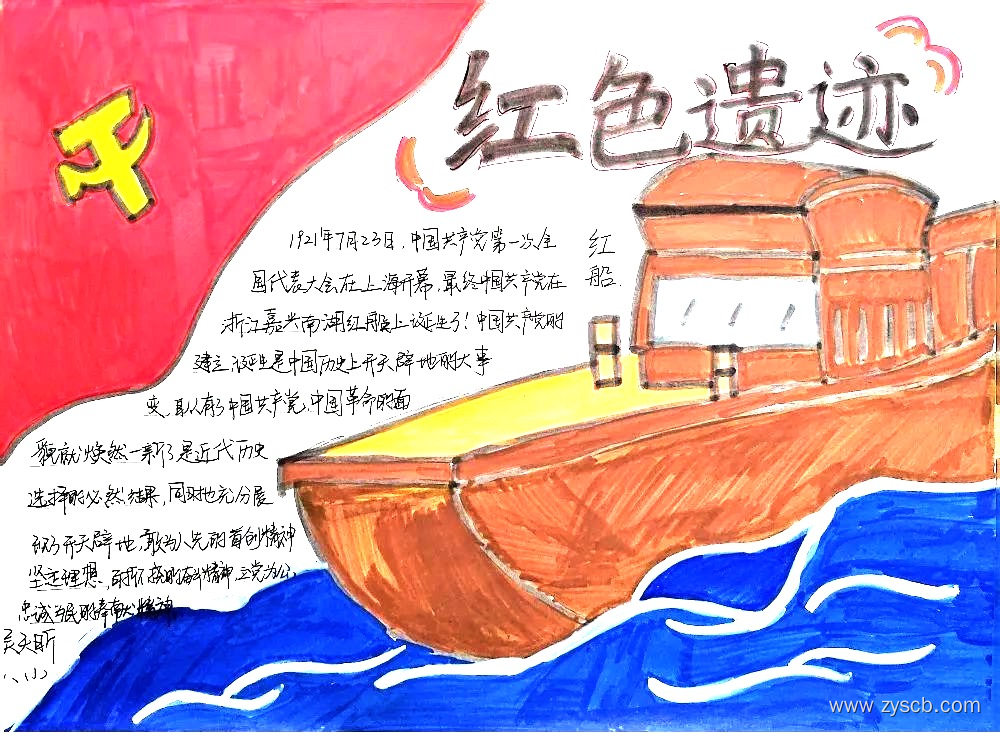 红色遗迹
红
船
1921年7月23日,中国共产党第一次全
国代表大会在上海开幕,最终中国共产党在
浙江嘉兴南湖红船上诞生了!中国共产党的
建立诞生是中国历史上开天辟地的大事
变,自从有了中国共产党,中国革命的面
貌就焕然一新了是近代历史
选择的必然结果,同时也充分展
现了开天辟地,敢为人先的首创精神
坚定理想、百折不挠的奋斗精神,立党为公,
忠诚为民的奉献精神
www.zyscb.com